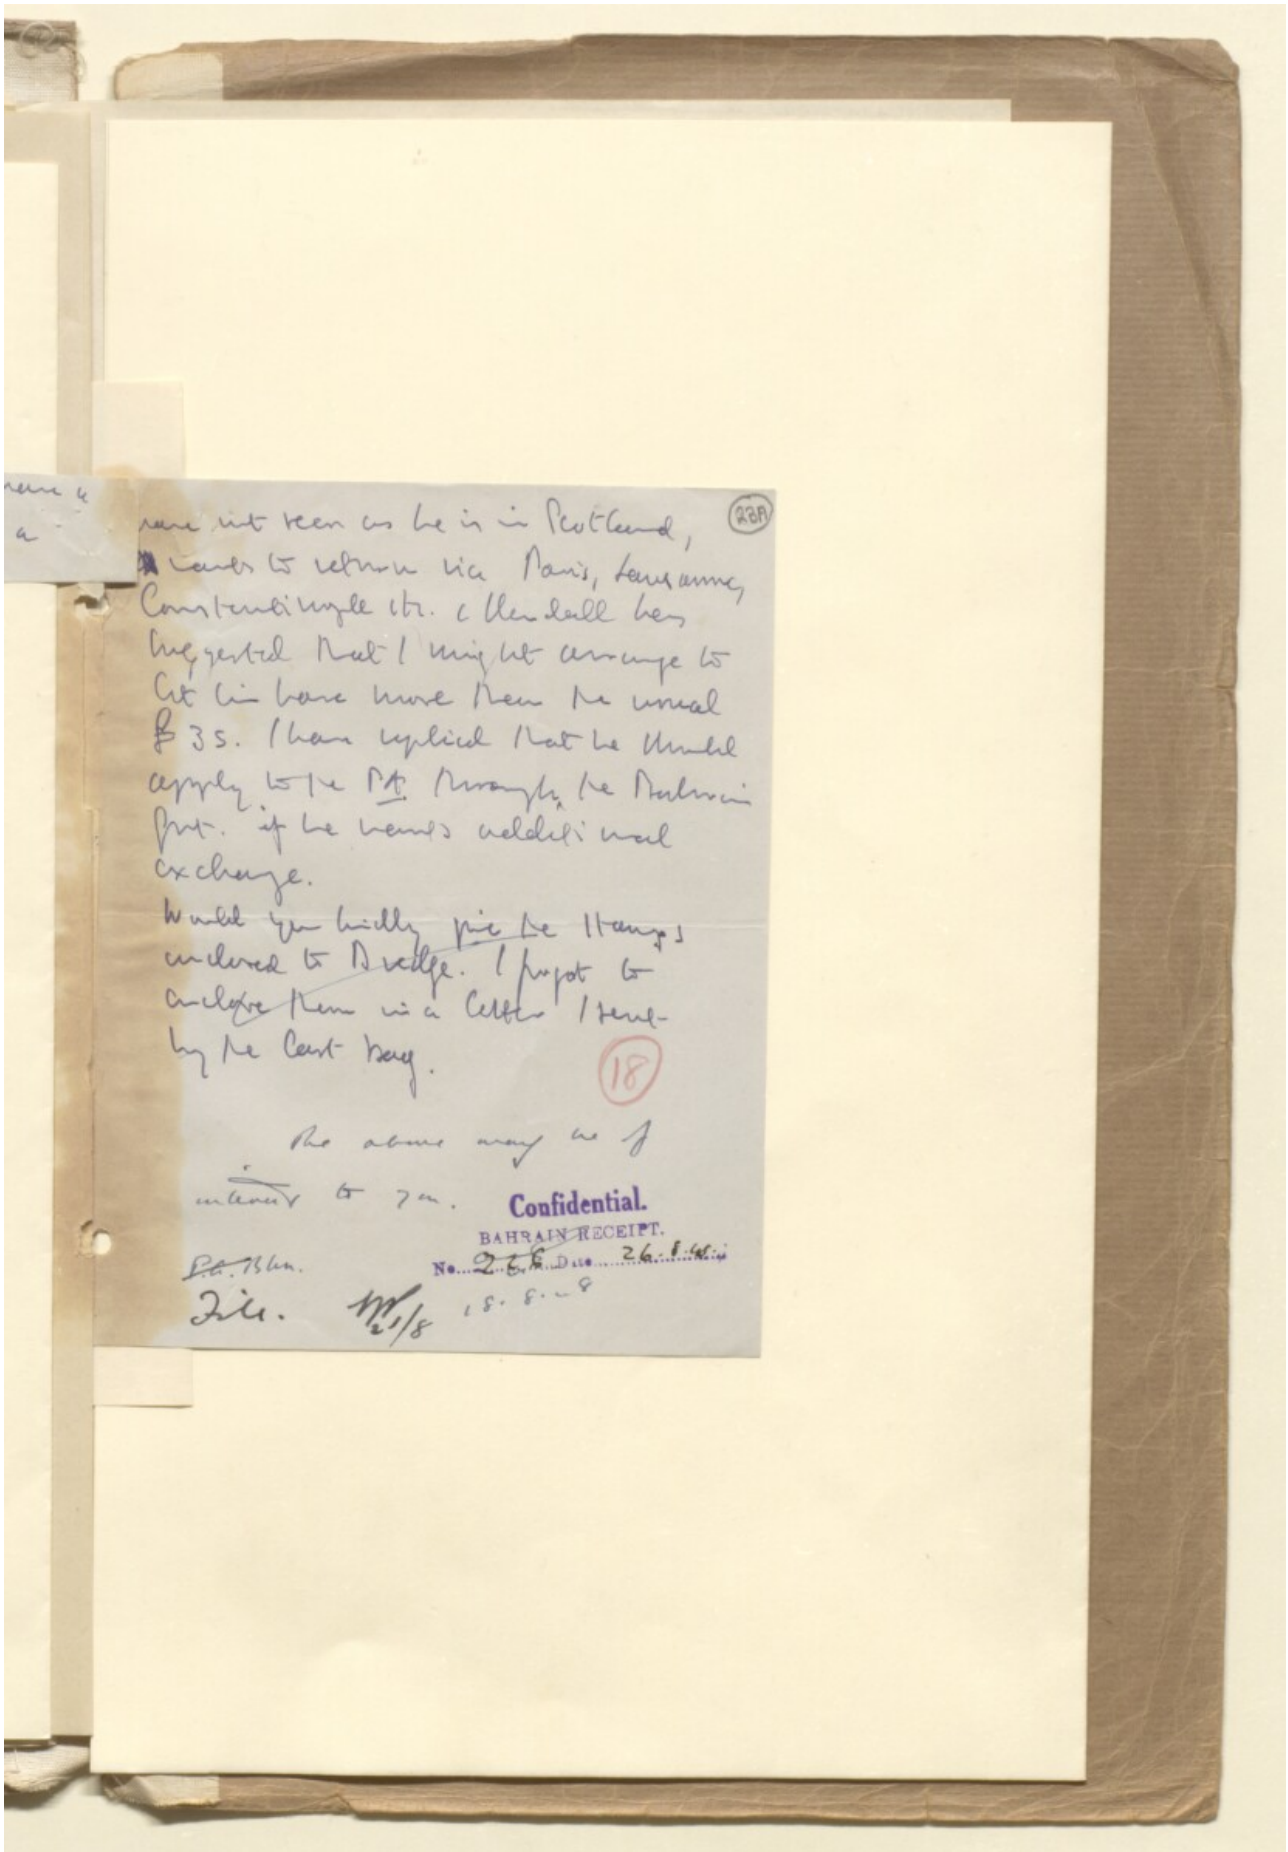 23A
have not seen as he is in Scotland,
wants to return via Paris, Lausanne,
Constantinople etc. & Kendall has
suggested that I might arrange to
let him have more than the usual
£ 35. I have replied that he should
apply to the PA. through the Bahrain
Govt. if he wants additional
exchange.
Would you kindly give the stamps
enclosed to Dredge. I forgot to
enclose them in a letter I sent
by the last bag.
18
The above may be of
interest to you.
Confidential.
BAHRAIN RECEIPT.
No. 268 Date 26.8.48.
P.A. Bhn.
File.
21/8
18.8.48